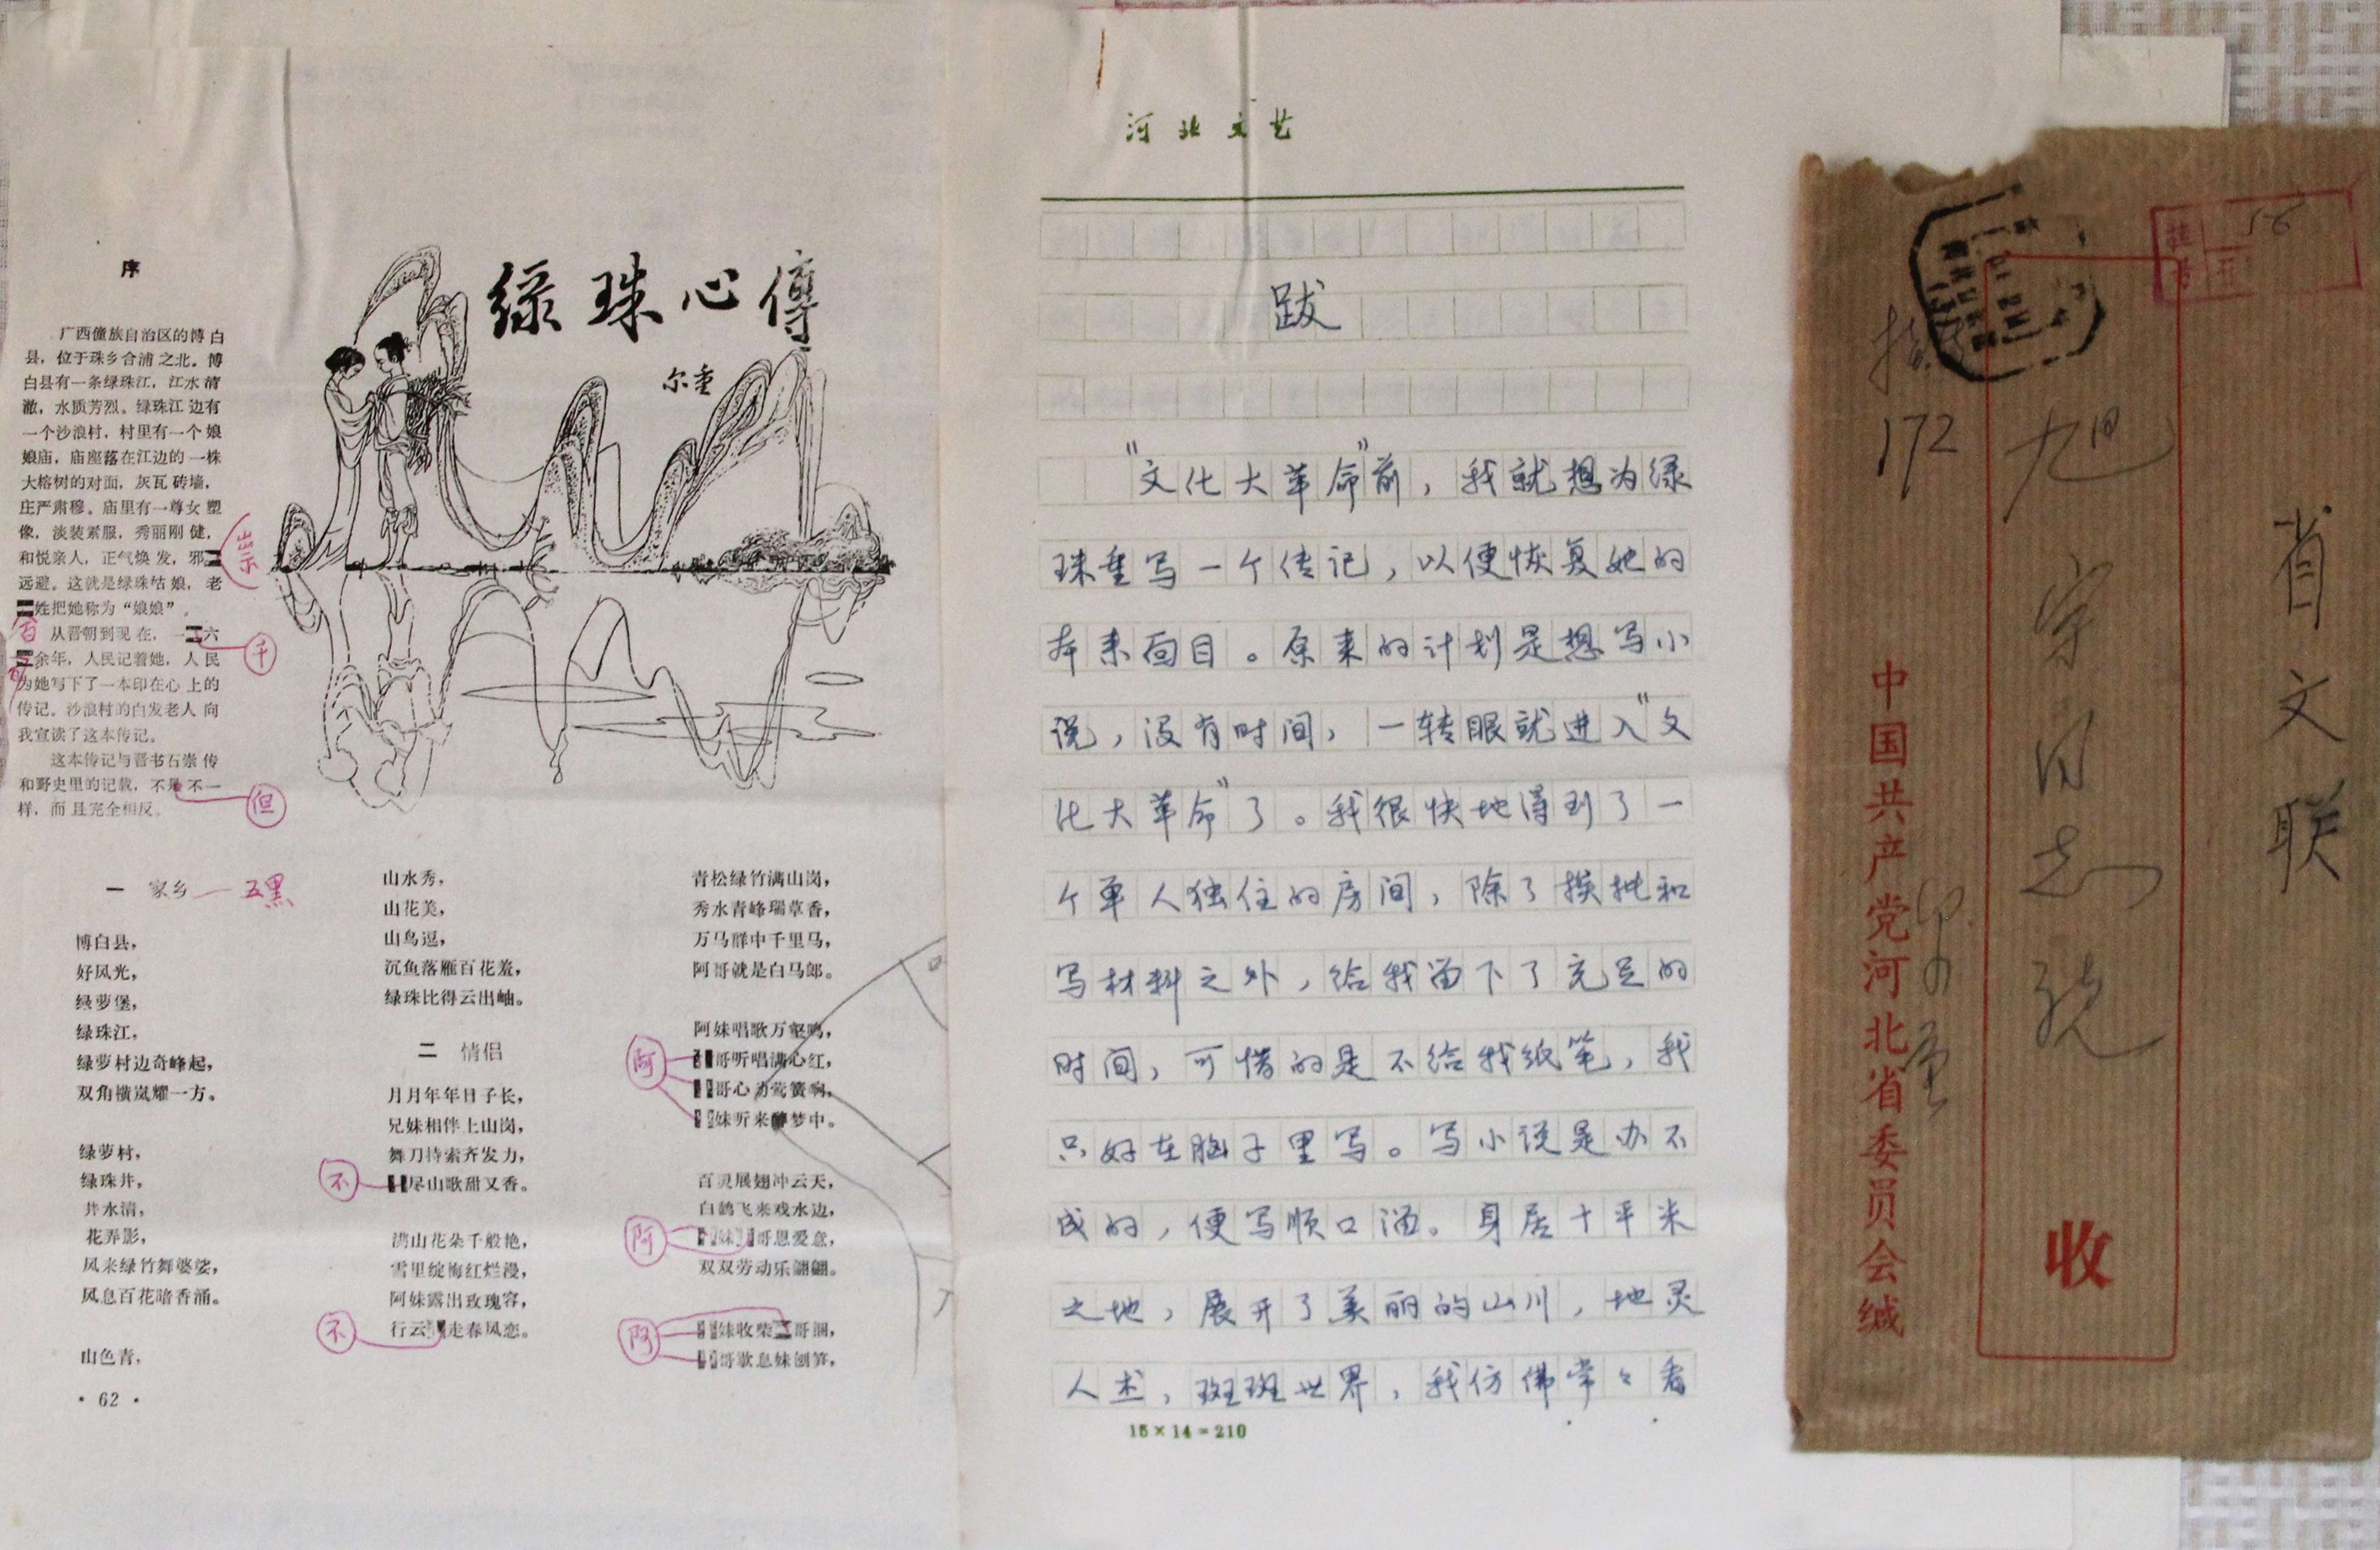 绿珠心傳
尔重
序
广西僮族自治区的博白
县，位于珠乡合浦之北。博
白县有一条绿珠江，江水清
澈，水质芳烈。绿珠江边有
一个沙浪村，村里有一个娘
娘庙，庙座落在江边的一株
大榕树的对面，灰瓦砖墙，
庄严肃穆。庙里有一尊女塑
像，淡装素服，秀丽刚健，
和悦亲人，正气焕发，邪
祟
远避。这就是绿珠姑娘，老
姓把她称为“娘娘”。
百
从晋朝到现在，一六
千
余年，人民记着她，人民
为她写下了一本印在心上的
传记。沙浪村的白发老人向
我宣读了这本传记。
这本传记与晋书石崇传
和野史里的记载，不是不一
但
样，而且完全相反。
一 家乡 — 五黑
博白县，
好风光，
绿萝堡，
绿珠江，
绿萝村边奇峰起，
双角横岚耀一方。
绿萝村，
绿珠井，
井水清，
花弄影，
风来绿竹舞婆娑，
风息百花暗香涌。
山色青，
· 62 ·
山水秀，
山花美，
山鸟逗，
沉鱼落雁百花羞，
绿珠比得云出岫。
二 情侣
月月年年日子长，
兄妹相伴上山岗，
舞刀持索齐发力，
尽山歌甜又香。
不
满山花朵千般艳，
雪里绽梅红烂漫，
阿妹露出玫瑰容，
行云走春风恋。
不
青松绿竹满山岗，
秀水青峰瑞草香，
万马群中千里马，
阿哥就是白马郎。
阿妹唱歌万壑鸣，
哥听唱满心红，
哥心动莺簧啊，
妹听来醉梦中。
阿
百灵展翅冲云天，
白鹤飞来戏水边，
妹哥恩爱意，
双双劳动乐翩翩。
阿
妹收柴哥捆，
哥歇息妹刨笋，
阿
河北文艺
跋
“文化大革命”前，我就想为绿
珠重写一个传记，以便恢复她的
本来面目。原来的计划是想写小
说，没有时间，一转眼就进入“文
化大革命”了。我很快地得到了一
个单人独住的房间，除了挨批和
写材料之外，给我留下了充足的
时间，可惜的是不给我纸笔，我
只好在脑子里写。写小说是办不
成的，便写顺口溜。身居十平米
之地，展开了美丽的山川，地灵
人杰，斑斑世界，我仿佛常々看
15×14=210
56
挂号
172
省文联
旭宇同志
收
中国共产党河北省委员会缄